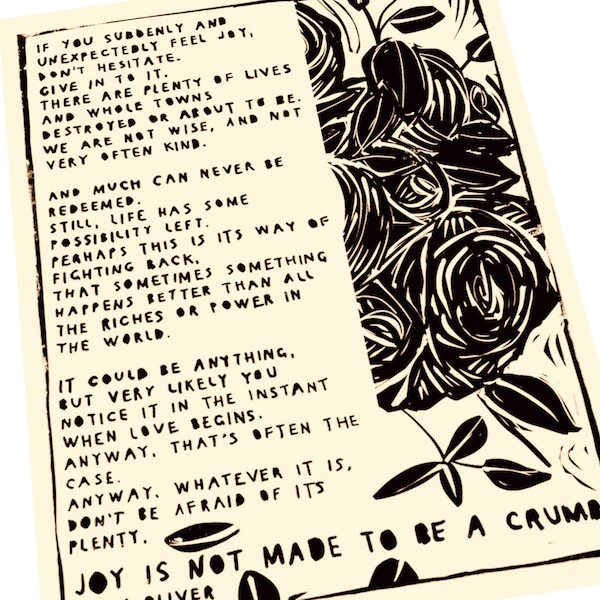 IF YOU SUDDENLY AND
UNEXPECTEDLY FEEL JOY,
DON'T HESITATE.
GIVE IN TO IT.
THERE ARE PLENTY OF LIVES
AND WHOLE TOWNS
DESTROYED OR ABOUT TO BE.
WE ARE NOT WISE, AND NOT
VERY OFTEN KIND.
AND MUCH CAN NEVER BE
REDEEMED.
STILL, LIFE HAS SOME
POSSIBILITY LEFT.
PERHAPS THIS IS ITS WAY OF
FIGHTING BACK,
THAT SOMETIMES SOMETHING
HAPPENS BETTER THAN ALL
THE RICHES OR POWER IN
THE WORLD.
IT COULD BE ANYTHING,
BUT VERY LIKELY YOU
NOTICE IT IN THE INSTANT
WHEN LOVE BEGINS.
ANYWAY, THAT'S OFTEN THE
CASE.
ANYWAY, WHATEVER IT IS,
DON'T BE AFRAID OF ITS
PLENTY.
JOY IS NOT MADE TO BE A CRUMB
OLIVER